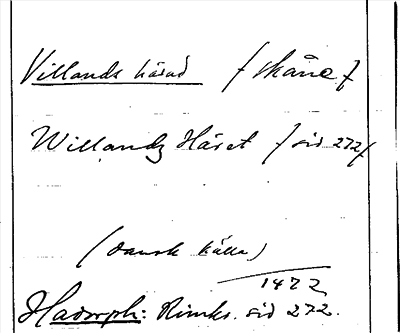 Villands härad / Skåne /
Willandz Häret / sid 272 /
(Dansk källa)
1472
Hadorph: Rimkr. sid 272.